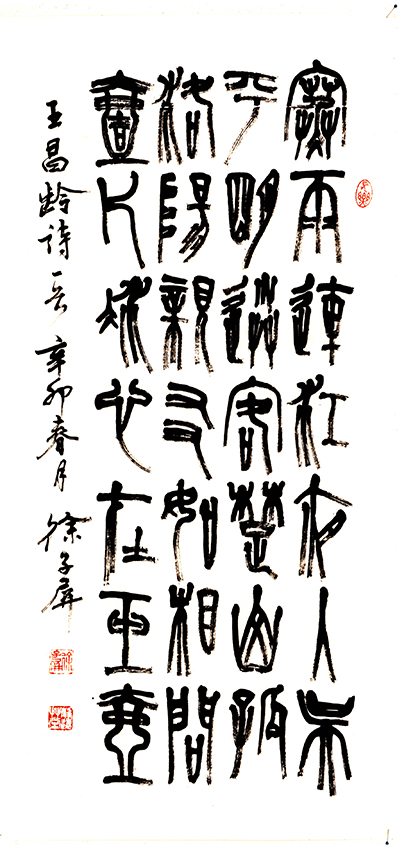 寒雨連江夜入吳
平明送客楚山孤
洛陽親友如相問
壹片冰心在玉壺
王昌齡詩一首 辛卯春月 徐子屏